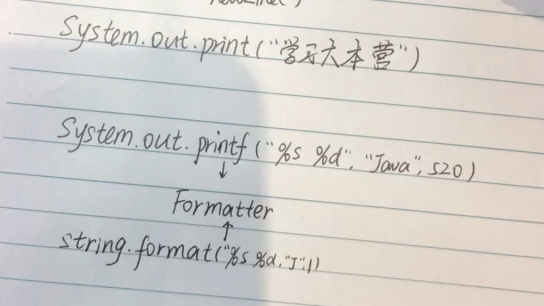 System.out.print("学习大本营")
System.out.printf("%s %d", "Java", 520)
↓
Formatter
↑
string.format("%s %d,"J",1)